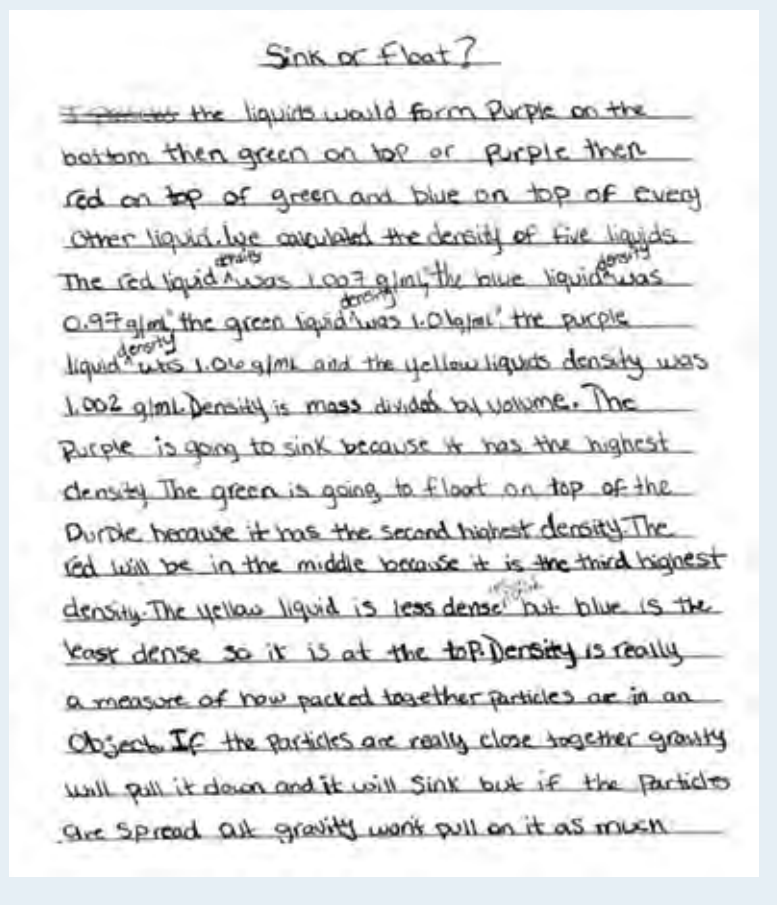 Sink or Float?
the liquids would form Purple on the
bottom then green on top or Purple then
red on top of green and blue on top of every
Other liquid. We calculated the density of five liquids
The red liquid ^density was 1.007 g/ml, the blue liquid ^density was
0.97 g/ml, the green liquid ^density was 1.01g/ml, the purple
liquid ^density was 1.06 g/ml and the yellow liquids density was
1.002 g/ml. Density is mass divided by volume. The
Purple is going to sink because it has the highest
density The green is going to float on top of the
Purple because it has the second highest density. The
red will be in the middle because it is the third highest
density. The yellow liquid is less dense but blue is the
least dense so it is at the top. Density is really
a measure of how packed together particles are in an
Object. If the particles are really close together gravity
will pull it down and it will Sink but if the Particles
are Spread out gravity won't pull on it as much